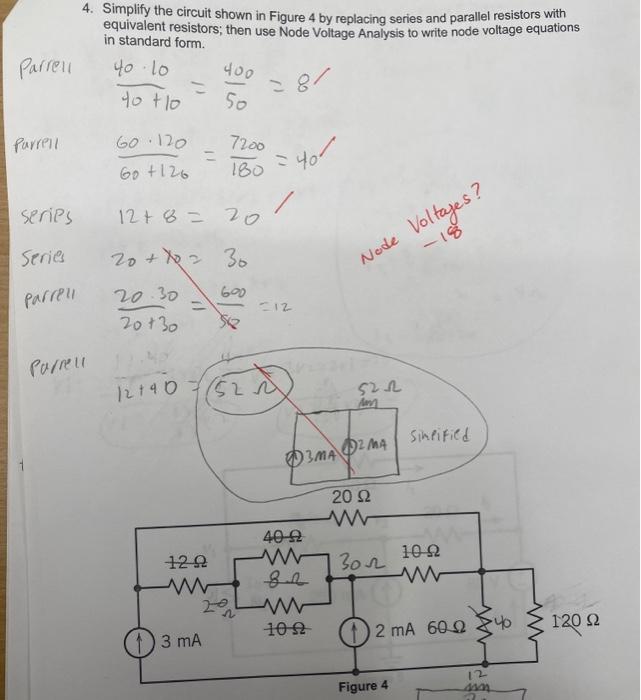 4. Simplify the circuit shown in Figure 4 by replacing series and parallel resistors with
equivalent resistors; then use Node Voltage Analysis to write node voltage equations
in standard form.
Parrell 40 · 10 / 40 + 10 = 400 / 50 = 8
Parrell 60 · 120 / 60 + 120 = 7200 / 180 = 40
series 12 + 8 = 20
Series 20 + 10 = 30
Node Voltages?
-18
parrell 20 · 30 / 20 + 30 = 600 / 50 = 12
Parrell 12 + 40 = 52 Ω
52 Ω
3MA 2MA Simpified
20 Ω
40 Ω
12 Ω 8 Ω 30 Ω 10 Ω
20 Ω
10 Ω
3 mA 2 mA 60 Ω 40 120 Ω
Figure 4
12